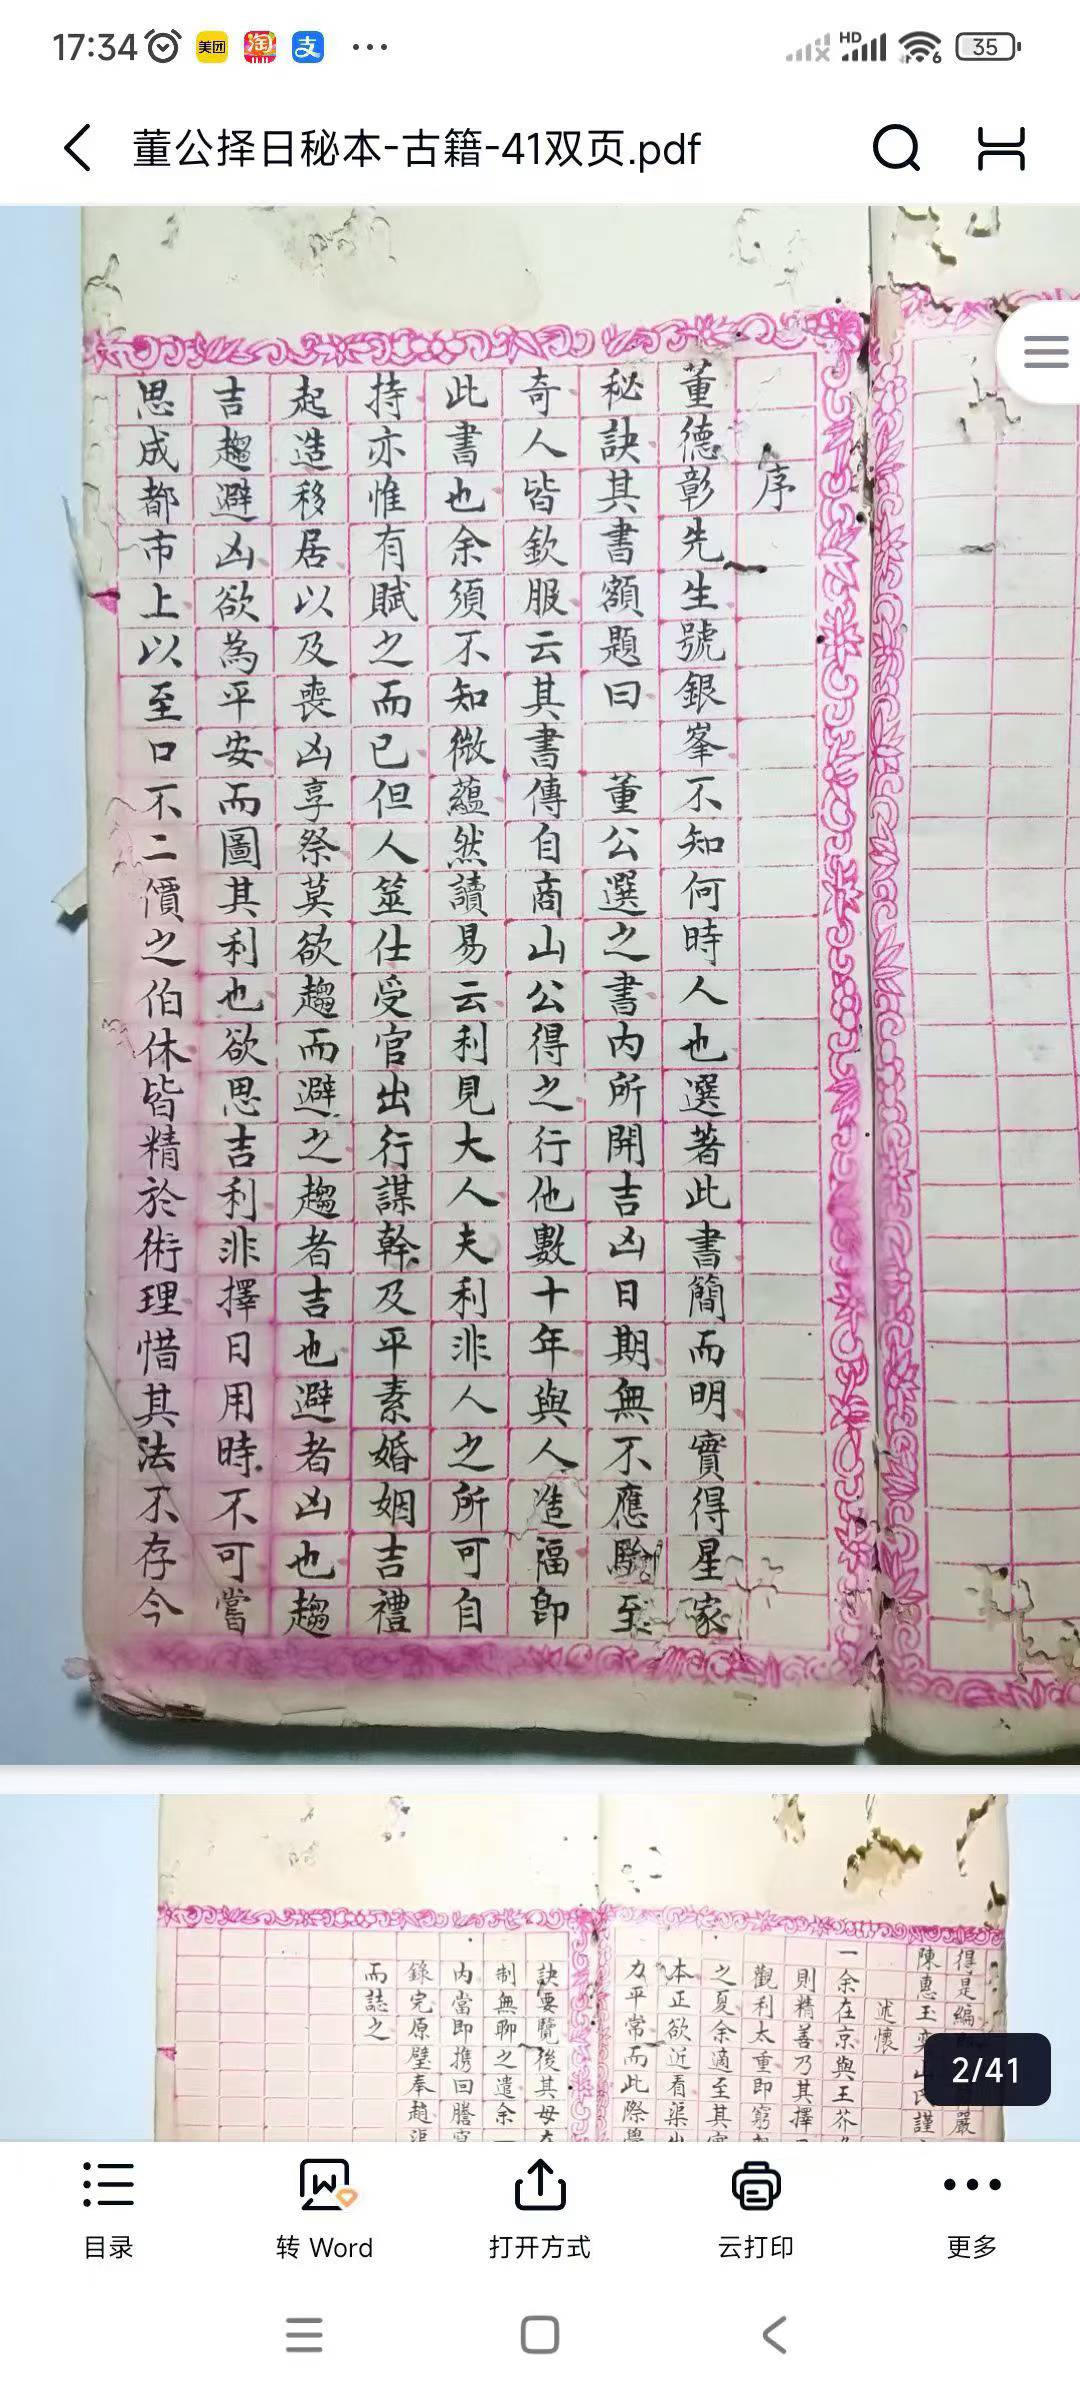 17:34 美团 淘 支 ... HD 6 35
董公择日秘本-古籍-41双页.pdf
序
董德彰先生號銀峯不知何時人也選著此書簡而明實得星家
秘訣其書額題曰 董公選之書内所開吉凶日期無不應驗至
奇人皆欽服云其書傳自商山公得之行他數十年與人造福即
此書也余須不知微蘊然讀易云利見大人夫利非人之所可自
持亦惟有賦之而已但人筮仕受官出行謀幹及平素婚姻吉禮
起造移居以及喪凶享祭莫欲趨而避之趨者吉也避者凶也趨
吉趨避凶欲為平安而圖其利也欲思吉利非擇日用時不可嘗
思成都市上以至口不二價之伯休皆精於術理惜其法不存今
得是編 嚴
陳惠玉 山 謹
述懷
一余在京與王芥
則精善乃其擇
觀利太重即窮
之夏余適至其
本正欲近看渠
力平常而此際
訣要覽後其毋
制無聊之遣余
内當即携回謄
錄完原璧奉趙
而誌之
2/41
目录
转 Word
打开方式
云打印
更多